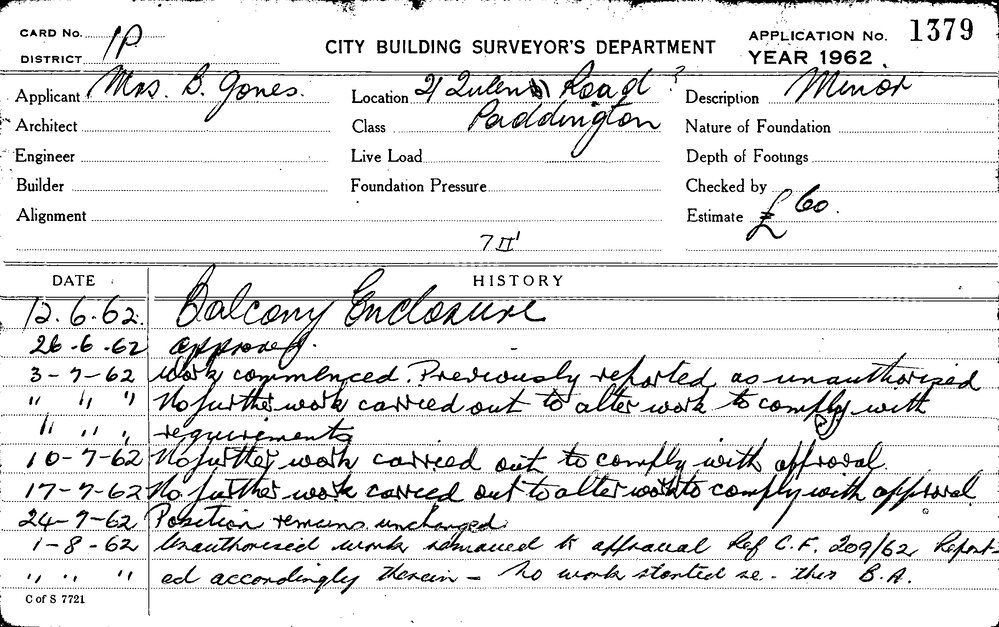 CARD No. 1P
CITY BUILDING SURVEYOR'S DEPARTMENT
APPLICATION No. 1379
DISTRICT
YEAR 1962.
Applicant Mrs. B. Jones.
Location 21 Road ?
Description Minor
Architect
Class Paddington
Nature of Foundation
Engineer
Live Load
Depth of Footings
Builder
Foundation Pressure
Checked by
Alignment
Estimate £ 60.
DATE HISTORY
12.6.62. Balcony Enclosure
26.6.62 approved.
3-7-62 Work commenced. Previously reported as unauthorised
" " " No further work carried out to alter work to comply with
" " " requirements
10-7-62 No further work carried out to comply with approval.
17-7-62 No further work carried out to alter work to comply with approval
24-7-62 Position remains unchanged.
1-8-62 Unauthorised work removed to approval Ref C.F. 209/62 Report-
" " " ed accordingly therein - No work started re. this B.A.
C of S 7721